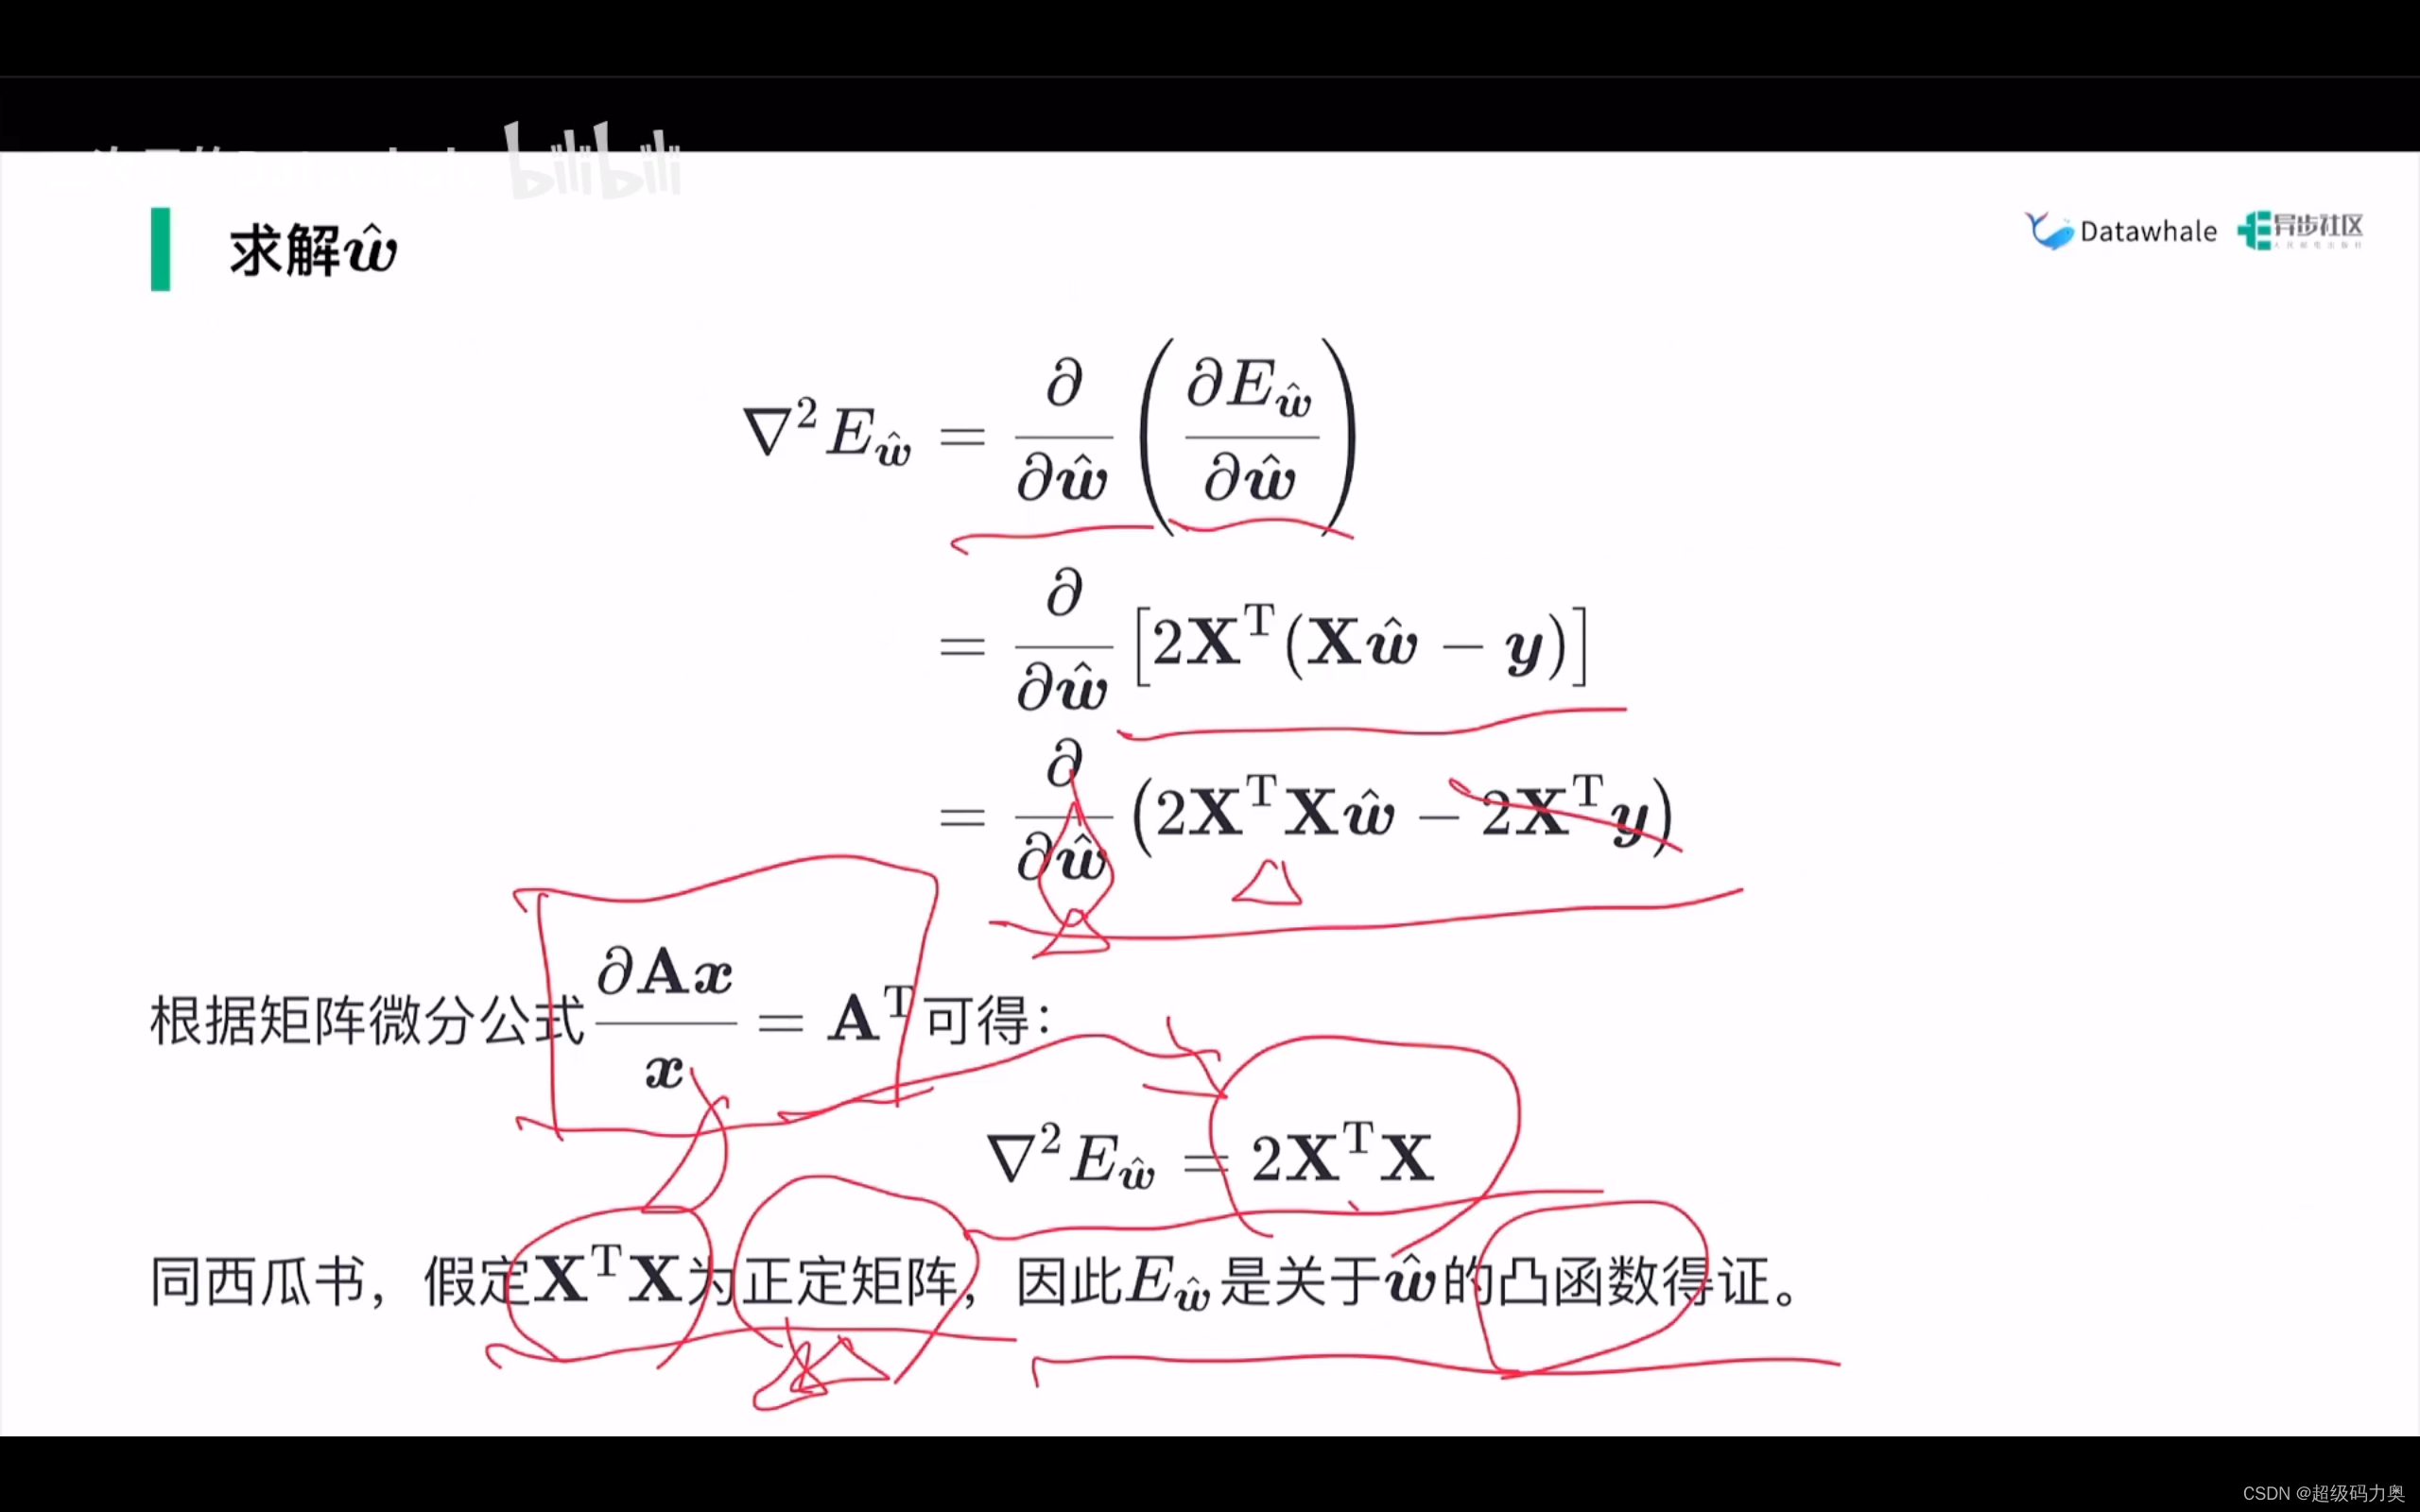 bilibili
求解ŵ
Datawhale 异步社区
∇²E_ŵ = ∂/∂ŵ (∂E_ŵ/∂ŵ)
= ∂/∂ŵ [2Xᵀ(Xŵ − y)]
= ∂/∂ŵ (2XᵀXŵ − 2Xᵀy)
根据矩阵微分公式 ∂Ax/x = Aᵀ 可得：
∇²E_ŵ = 2XᵀX
同西瓜书，假定XᵀX为正定矩阵，因此E_ŵ是关于ŵ的凸函数得证。
CSDN @超级码力奥